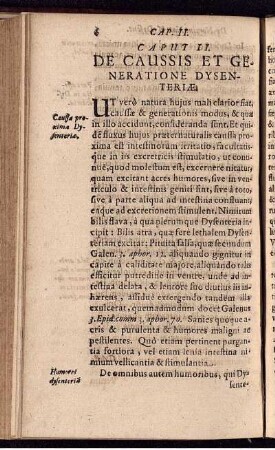 6 CAP. II.
CAPUT II.
DE CAUSSIS ET GE-
NERATIONE DYSEN-
TERIÆ.
Caussa pro-
xima Dy-
senteriæ.
UT verò natura hujus mali clarior fiat,
caussæ & generationis modus, & quæ
in illo accidunt, consideranda sunt. Et qui-
dē fluxus hujus præternaturalis caussa pro-
xima est intestinorum irritatio, facultat-
que in iis excretricis stimulatio, ut conne-
tur, quod molestum est, excernere irritatur,
quam excitant acres humores, sive in ven-
triculo & intestinis geniti sint, sive à toto,
sive à parte aliqua ad intestina confluant,
eosque ad excretionem stimulent. Nimirum
bilis flava, à qua plerunque Dysenteria in-
cipit: Bilis atra, quæ fere lethalem Dysen-
teriam excitat: Pituita salsa, quæ secundum
Galen. 7. aphor. 12. aliquando gignitur in
capite à caliditate majore, aliquando talis
efficitur putredine in ventre, unde ad in-
testina delata, & lentore suo diutius in-
hærens, assidue extergendo tandem illa
exulcerat, quemadmodum docet Galenus
3. Epid. comm. 3. aphor. 70. Sanies quoque a-
cris & purulenta & humores maligni ac
pestilentes. Quo etiam pertinent purgan-
tia fortiora, vel etiam lenia intestina ni-
mium vellicantia & stimulantia.
Humores
dysenterici
De omnibus autem humoribus, qui Dy-
sente-